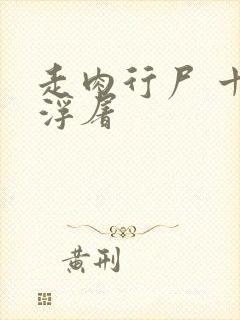 走肉行尸 十
浮屠
黄刑